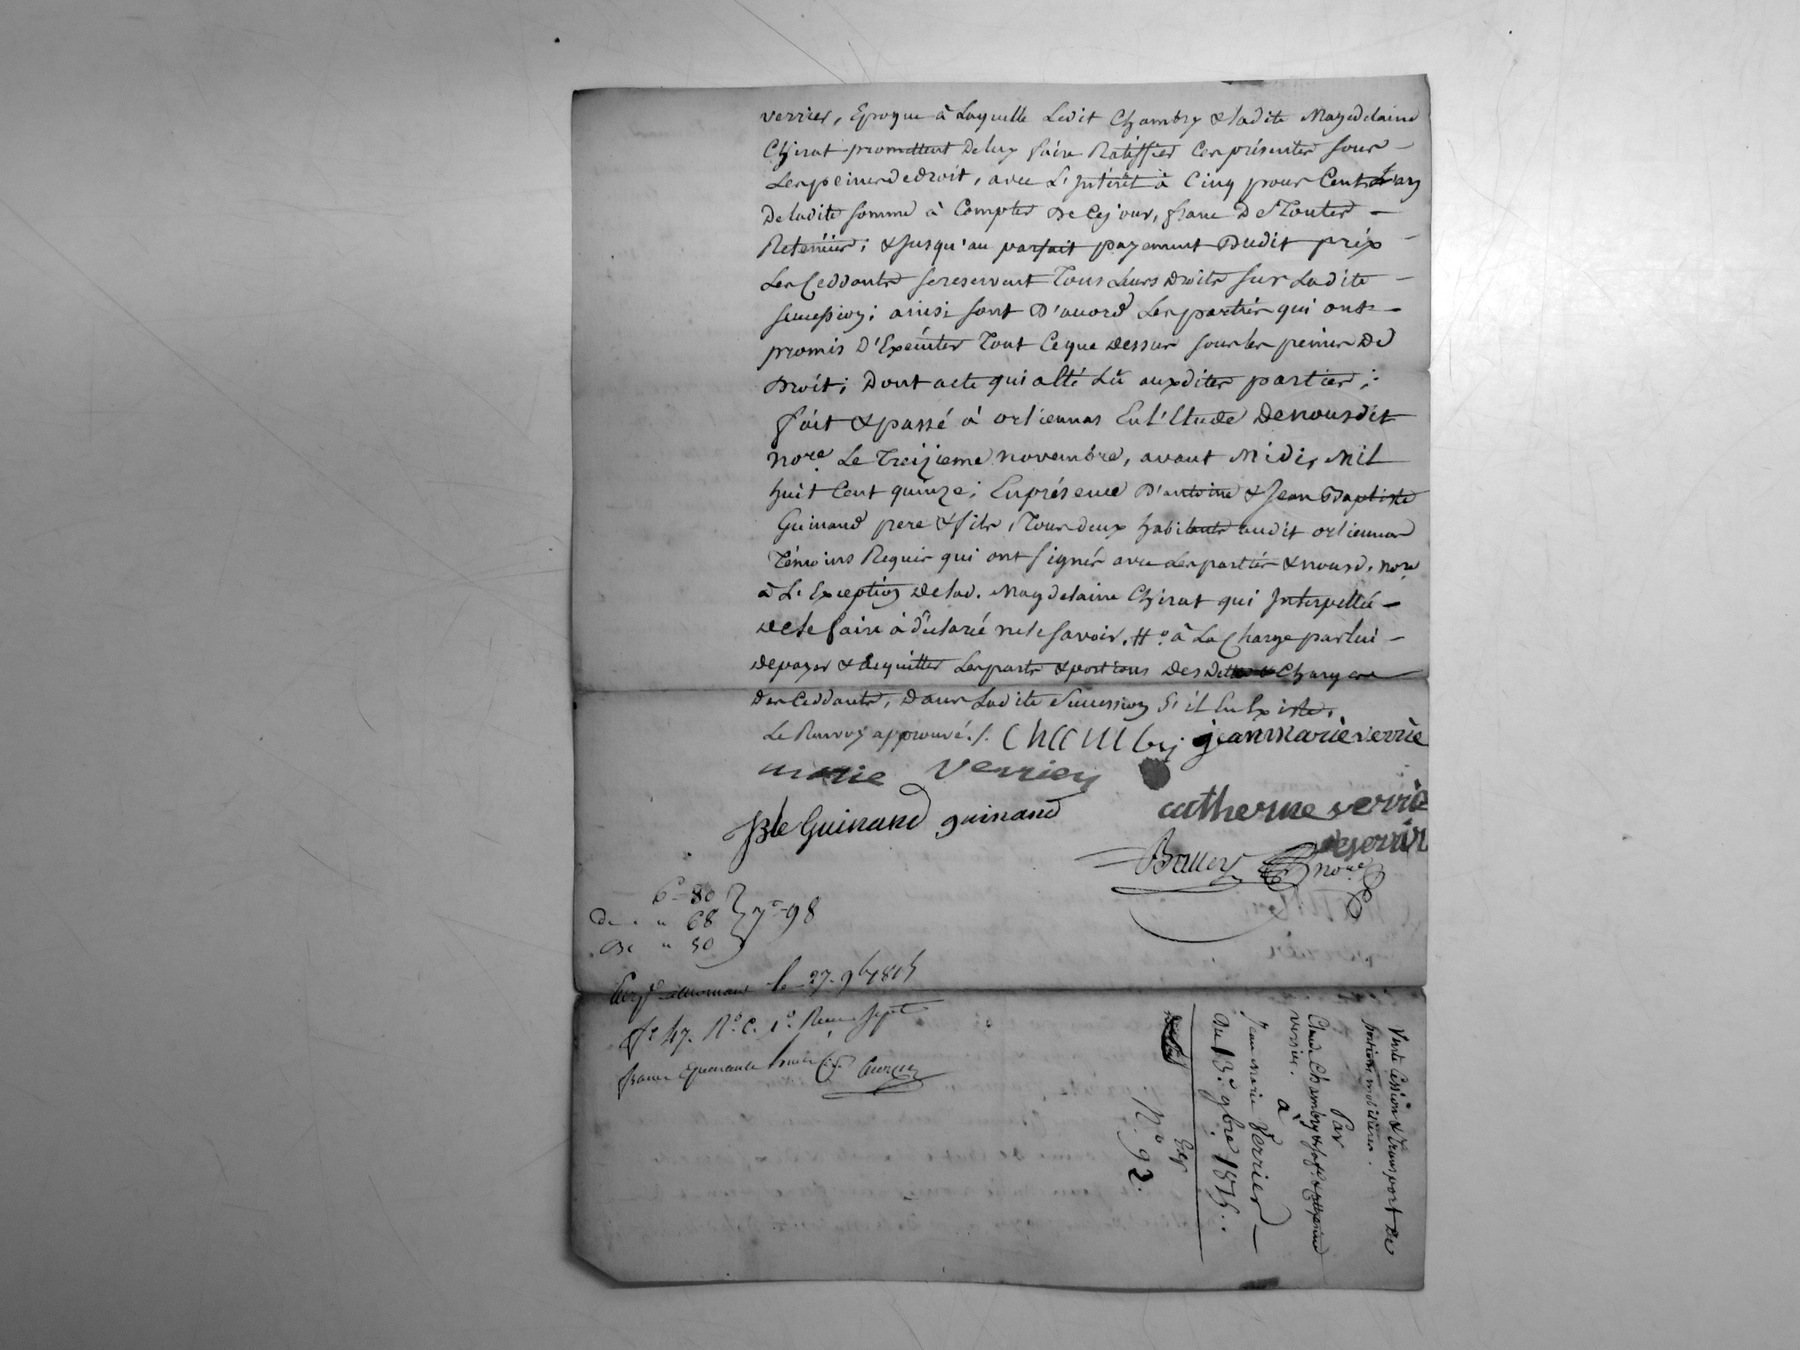 verrier, Epoque à Laquelle Ledit Chambry & ladite Magdelaine
Chirat promettent de luy faire Ratiffier Ces présentes sous
Les peines de droit, avec L'Intérêt à Cinq pour Cent L'an
De ladite somme à Compter de Ce jour, franc De Toutes
Retenües; & Jusqu'au parfait payement Dudit prix
Les Ceddants se reservent Tous Leurs Droits sur Ladite
Succession; ainsi sont D'accord Les parties qui ont
promis D'Exécuter Tout Ce que Dessus sous les peines De
Droit; Dont acte qui a été Lû auxdites parties;
fait & passé à orlienas En l'Etude De nous dit
nore. Le Treizieme novembre, avant Midi, Mil
huit Cent quinze; En présence D'antoine & Jean Baptiste
Guinand pere & fils, Tous deux habitants audit orlienas
Témoins Requis qui ont signés avec Les parties & nous d. nore.
à L'Exception De lad. Magdelaine Chirat qui Interpellée
De le faire a déclaré ne le savoir. # à La Charge par lui
De payer & acquitter Les parts & portions Des Dettes & Charges
Des Ceddants, Dans Ladite Succession S'il En Existe.
Le Renvoy approuvé./. Chambry jean marie verrie
marie verrier
catherine verrie
JBte Guinand guinand
nore
6 - 80
De . " 68
" 50
7 - 98
le 27. 9bre 1815
fo 47. Ro. C. 1o. Reçu sept
francs quarante huit c.
Vente Cession & Transport De
portions mobilieres.
Par
Claude Chambry & Catherine
verrier.
à
Jean marie Verrier
Du 13e. 9bre 1815..
No. 92.